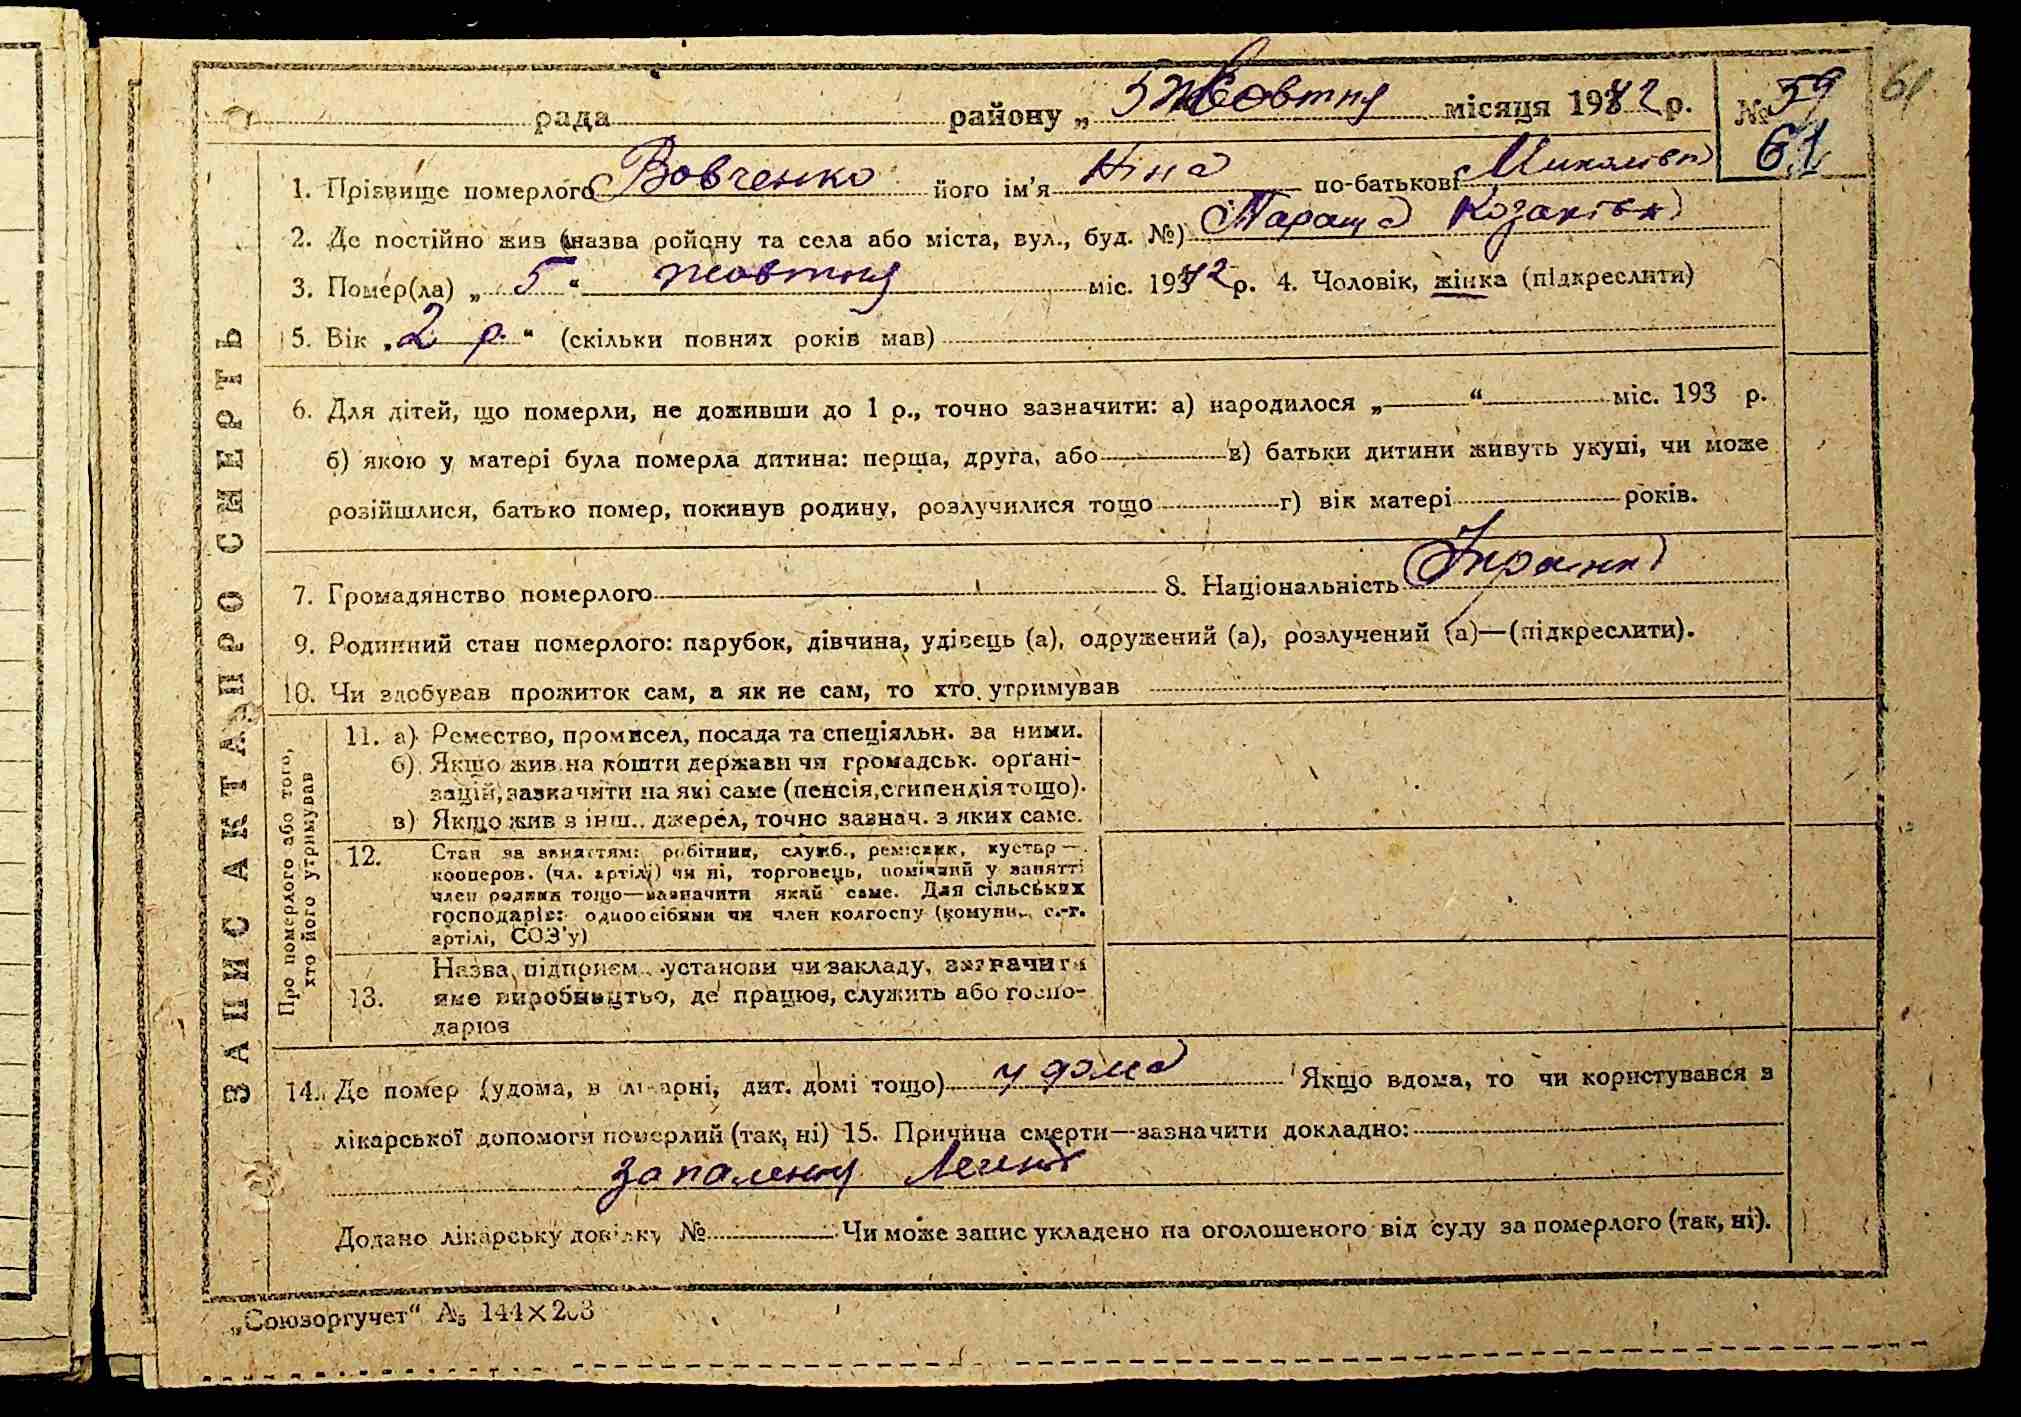 рада району „ 5 Жовтня місяця 1942 р. № 59 61
61
1. Прізвище померлого Вовченко його ім'я Ніна по-батькові Миколівна
2. Де постійно жив (назва ройону та села або міста, вул., буд. №) Параща Козаківка
3. Помер(ла) „ 5 “ жовтня міс. 1942 р. 4. Чоловік, жінка (підкреслити)
5. Вік „ 2 р. “ (скільки повних років мав)
6. Для дітей, що померли, не доживши до 1 р., точно зазначити: а) народилося „ “ міс. 193 р.
б) якою у матері була померла дитина: перша, друга, або в) батьки дитини живуть укупі, чи може
розійшлися, батько помер, покинув родину, розлучилися тощо г) вік матері років.
7. Громадянство померлого 8. Національність Україн
9. Родинний стан померлого: парубок, дівчина, удівець (а), одружений (а), розлучений (а)—(підкреслити).
10. Чи здобував прожиток сам, а як не сам, то хто утримував
ЗАПИС АКТА ПРО СМЕРТЬ
Про померлого або того,
хто його утримував
11. а) Ремество, промисел, посада та спеціяльн. за ними.
б) Якщо жив на кошти держави чи громадськ. органі-
зацій, зазначити на які саме (пенсія, стипендія тощо).
в) Якщо жив з інш. джерел, точно зазнач. з яких саме.
12. Стан за заняттям: робітник, служб., ремісник, кустар—
кооперов. (чл. артілі) чи ні, торговець, помічний у занятті
член родини тощо—зазначити який саме. Для сільських
господарів: одноосібний чи член колгоспу (комуни, с.-г.
артілі, СОЗ'у)
13. Назва підприєм. установи чи закладу, зазначити
яке виробництво, де працює, служить або госпо-
дарює
14. Де помер (удома, в лікарні, дит. домі тощо) у дома Якщо вдома, то чи користувався з
лікарської допомоги померлий (так, ні) 15. Причина смерти—зазначити докладно:
запалення Легень
Додано лікарську довідку № Чи може запис укладено на оголошеного від суду за померлого (так, ні).
„Союзоргучет“ А5 144×203